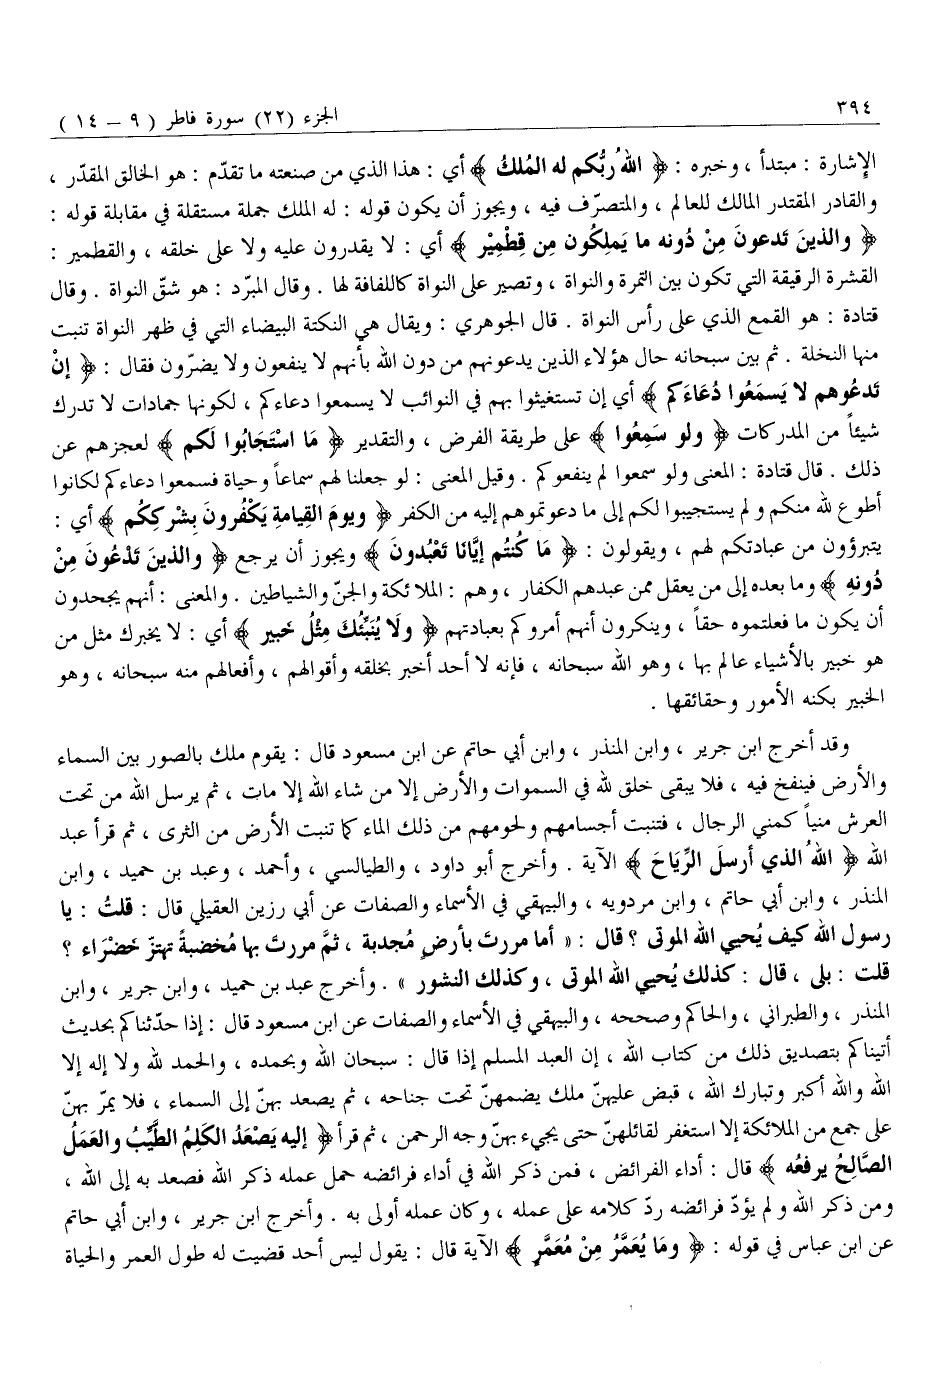 ٣٩٤
الجزء (٢٢) سورة فاطر ( ٩ – ١٤ )
الإشارة : مبتدأ ، وخبره : ﴿ اللهُ ربُّكم له المُلكُ ﴾ أي : هذا الذي من صنعته ما تقدّم : هو الخالق المقدّر ،
والقادر المقتدر المالك للعالم ، والمتصرّف فيه ، ويجوز أن يكون قوله : له الملك جملة مستقلة في مقابلة قوله :
﴿ والذينَ تَدعونَ مِنْ دُونه ما يَملِكُون مِن قِطْمِيْر ﴾ أي : لا يقدرون عليه ولا على خلقه ، والقطمير :
القشرة الرقيقة التي تكون بين التمرة والنواة ، وتصير على النواة كاللفافة لها . وقال المبّرد : هو شقّ النواة . وقال
قتادة : هو القمع الذي على رأس النواة . قال الجوهري : ويقال هي النكتة البيضاء التي في ظهر النواة تنبت
منها النخلة . ثم بين سبحانه حال هؤلاء الذين يدعونهم من دون الله بأنهم لا ينفعون ولا يضرّون فقال : ﴿ إنْ
تَدعُوهم لا يَسمَعُوا دُعَاءَكم ﴾ أي إن تستغيثوا بهم في النوائب لا يسمعوا دعاءكم ، لكونها جمادات لا تدرك
شيئاً من المدركات ﴿ ولو سَمِعُوا ﴾ على طريقة الفرض ، والتقدير ﴿ مَا اسْتَجَابُوا لَكم ﴾ لعجزهم عن
ذلك . قال قتادة : المعنى ولو سمعوا لم ينفعوكم . وقيل المعنى : لو جعلنا لهم سماعاً وحياة فسمعوا دعاءكم لكانوا
أطوع لله منكم ولم يستجيبوا لكم إلى ما دعوتموهم إليه من الكفر ﴿ ويومَ القِيامةِ يَكْفُرونَ بِشركِكُم ﴾ أي :
يتبرؤون من عبادتكم لهم ، ويقولون : ﴿ مَا كُنتُم إيَّانَا تَعْبُدونَ ﴾ ويجوز أن يرجع ﴿ والذينَ تَدْعُونَ مِنْ
دُونهِ ﴾ وما بعده إلى من يعقل ممن عبدهم الكفار ، وهم : الملائكة والجنّ والشياطين . والمعنى : أنهم يجحدون
أن يكون ما فعلتموه حقاً ، وينكرون أنهم أمروكم بعبادتهم ﴿ ولَا يُنَبِّئُكَ مِثْلُ خَبير ﴾ أي : لا يخبرك مثل من
هو خبير بالأشياء عالم بها ، وهو الله سبحانه ، فإنه لا أحد أخبر بخلقه وأقوالهم ، وأفعالهم منه سبحانه ، وهو
الخبير بكنه الأمور وحقائقها .
وقد أخرج ابن جرير ، وابن المنذر ، وابن أبي حاتم عن ابن مسعود قال : يقوم ملك بالصور بين السماء
والأرض فينفخ فيه ، فلا يبقى خلق لله في السموات والأرض إلا من شاء الله إلا مات ، ثم يرسل الله من تحت
العرش منياً كمني الرجال ، فتنبت أجسامهم ولحومهم من ذلك الماء كما تنبت الأرض من الثرى ، ثم قرأ عبد
الله ﴿ اللهُ الذي أرسلَ الرِّيَاحَ ﴾ الآية . وأخرج أبو داود ، والطيالسي ، وأحمد ، وعبد بن حميد ، وابن
المنذر ، وابن أبي حاتم ، وابن مردويه ، والبيهقي في الأسماء والصفات عن أبي رزين العقيلي قال : قلتُ : يا
رسول الله كيف يُحيي الله الموتى ؟ قال : « أما مررتَ بأرضٍ مُجدبة ، ثمَّ مررتَ بها مُخضبةً تهتزّ خَضْرَاء ؟
قلت : بلى ، قال : كذلك يُحيي الله الموتى ، وكذلك النشور » . وأخرج عبد بن حميد ، وابن جرير ، وابن
المنذر ، والطبراني ، والحاكم وصححه ، والبيهقي في الأسماء والصفات عن ابن مسعود قال : إذا حدّثناكم بحديث
أتيناكم بتصديق ذلك من كتاب الله ، إن العبد المسلم إذا قال : سبحان الله وبحمده ، والحمد لله ولا إله إلا
الله والله أكبر وتبارك الله ، قبض عليهنّ ملك يضمهنّ تحت جناحه ، ثم يصعد بهنّ إلى السماء ، فلا يمرّ بهنّ
على جمع من الملائكة إلا استغفر لقائلهنّ حتى يجيء بهنّ وجه الرحمن ، ثم قرأ ﴿ إليه يَصْعَدُ الكَلِمُ الطَّيِّبُ والعَمَلُ
الصَّالِحُ يرفعُه ﴾ قال : أداء الفرائض ، فمن ذكر الله في أداء فرائضه حمل عمله ذكر الله فصعد به إلى الله ،
ومن ذكر الله ولم يؤدّ فرائضه ردّ كلامه على عمله ، وكان عمله أولى به . وأخرج ابن جرير ، وابن أبي حاتم
عن ابن عباس في قوله : ﴿ ومَا يُعَمَّرُ مِنْ مُعَمَّرٍ ﴾ الآية قال : يقول ليس أحد قضيت له طول العمر والحياة